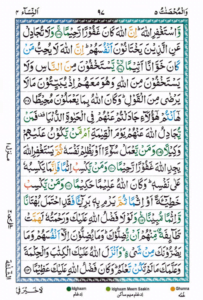 وَالْمُحْصَنٰتُ ٥ ٩٧ النِّسَآء ٤
وَّاسْتَغْفِرِ اللّٰهَ ؕ اِنَّ اللّٰهَ كَانَ غَفُوْرًا رَّحِيْمًا ۚ وَلَا تُجَادِلْ
عَنِ الَّذِيْنَ يَخْتَانُوْنَ اَنْفُسَهُمْ ؕ اِنَّ اللّٰهَ لَا يُحِبُّ مَنْ
كَانَ خَوَّانًا اَثِيْمًا ۙ يَّسْتَخْفُوْنَ مِنَ النَّاسِ وَلَا
يَسْتَخْفُوْنَ مِنَ اللّٰهِ وَهُوَ مَعَهُمْ اِذْ يُبَيِّتُوْنَ مَا لَا
يَرْضٰى مِنَ الْقَوْلِ ؕ وَكَانَ اللّٰهُ بِمَا يَعْمَلُوْنَ مُحِيْطًا
هٰۤاَنْتُمْ هٰۤؤُلَآءِ جَادَلْتُمْ عَنْهُمْ فِي الْحَيٰوةِ الدُّنْيَا ۫ فَمَنْ
يُّجَادِلُ اللّٰهَ عَنْهُمْ يَوْمَ الْقِيٰمَةِ اَمْ مَّنْ يَّكُوْنُ عَلَيْهِمْ
وَكِيْلًا وَمَنْ يَّعْمَلْ سُوْٓءًا اَوْ يَظْلِمْ نَفْسَهٗ ثُمَّ يَسْتَغْفِرِ اللّٰهَ
يَجِدِ اللّٰهَ غَفُوْرًا رَّحِيْمًا وَمَنْ يَّكْسِبْ اِثْمًا فَاِنَّمَا يَكْسِبُهٗ
عَلٰى نَفْسِهٖ ؕ وَكَانَ اللّٰهُ عَلِيْمًا حَكِيْمًا وَمَنْ يَّكْسِبْ
خَطِيْٓئَةً اَوْ اِثْمًا ثُمَّ يَرْمِ بِهٖ بَرِيْٓئًا فَقَدِ احْتَمَلَ بُهْتَانًا
وَّاِثْمًا مُّبِيْنًا وَلَوْلَا فَضْلُ اللّٰهِ عَلَيْكَ وَرَحْمَتُهٗ لَهَمَّتْ
طَّآئِفَةٌ مِّنْهُمْ اَنْ يُّضِلُّوْكَ ؕ وَمَا يُضِلُّوْنَ اِلَّاۤ اَنْفُسَهُمْ وَمَا
يَضُرُّوْنَكَ مِنْ شَيْءٍ ؕ وَاَنْزَلَ اللّٰهُ عَلَيْكَ الْكِتٰبَ وَالْحِكْمَةَ
وَعَلَّمَكَ مَا لَمْ تَكُنْ تَعْلَمُ ؕ وَكَانَ فَضْلُ اللّٰهِ عَلَيْكَ عَظِيْمًا
Idghaam Idghaam Meem Saakin Ghunna